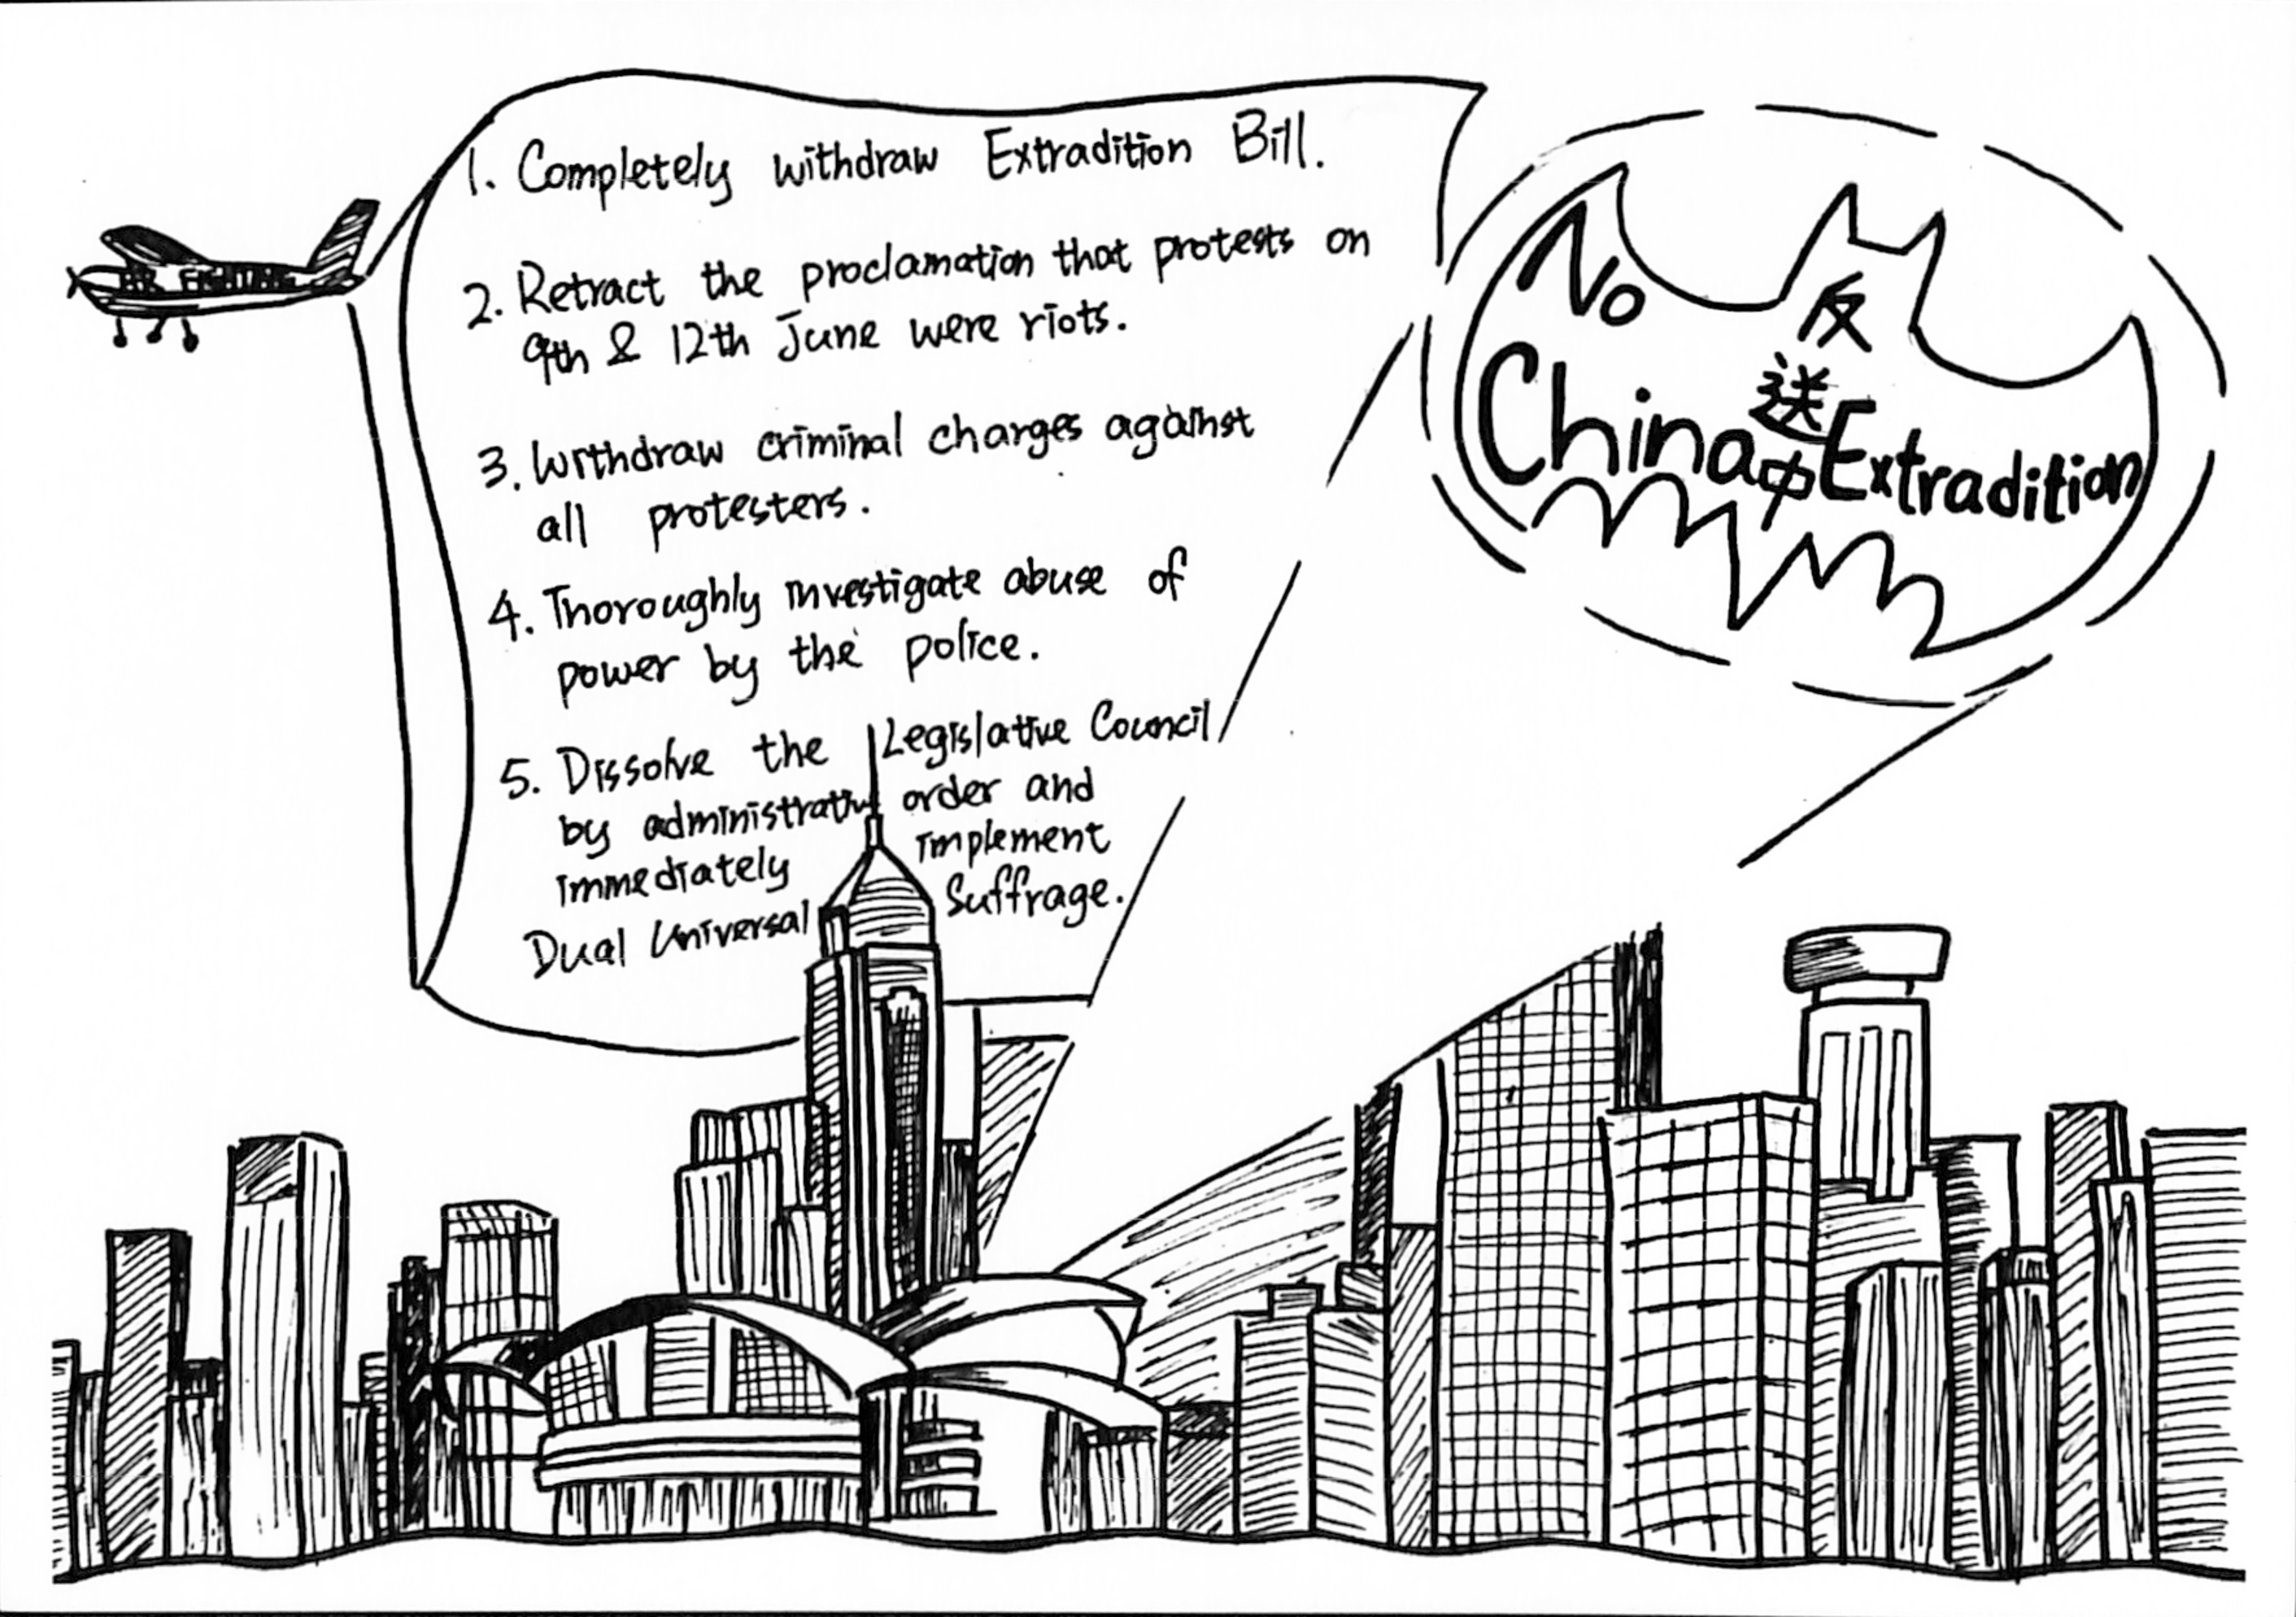 1. Completely withdraw Extradition Bill.
2. Retract the proclamation that protests on
9th & 12th June were riots.
3. Withdraw criminal charges against
all protesters.
4. Thoroughly investigate abuse of
power by the police.
5. Dissolve the Legislative Council
by administrative order and
immediately implement
Dual Universal Suffrage.
No
China Extradition
反
送
中